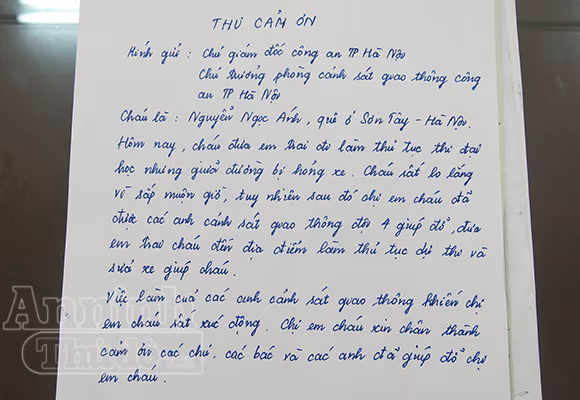 THƯ CẢM ƠN
Kính gửi : Chú giám đốc công an TP Hà Nội
Chú trưởng phòng cảnh sát giao thông công
an TP Hà Nội
Cháu là : Nguyễn Ngọc Anh, quê ở Sơn Tây - Hà Nội.
Hôm nay, cháu đưa em trai đi làm thủ tục thi đại
học nhưng giữa đường bị hỏng xe. Cháu rất lo lắng
vì sắp muộn giờ, tuy nhiên sau đó chị em cháu đã
được các anh cảnh sát giao thông đội 4 giúp đỡ, đưa
em trai cháu đến địa điểm làm thủ tục dự thi và
sửa xe giúp cháu.
Việc làm của các anh cảnh sát giao thông khiến chị
em cháu rất xúc động. Chị em cháu xin chân thành
cảm ơn các chú, các bác và các anh đã giúp đỡ chị
em cháu.
An ninh
Thủ đô